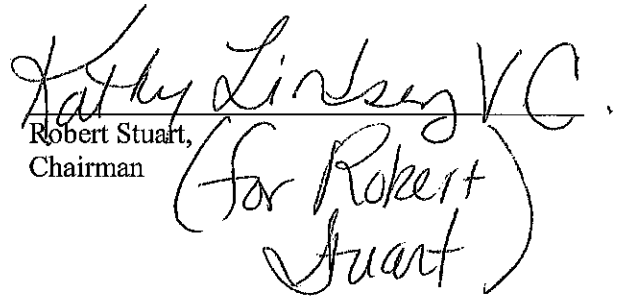 Kathy Lindsey V C.
Robert Stuart,
Chairman
(for Robert
Stuart)